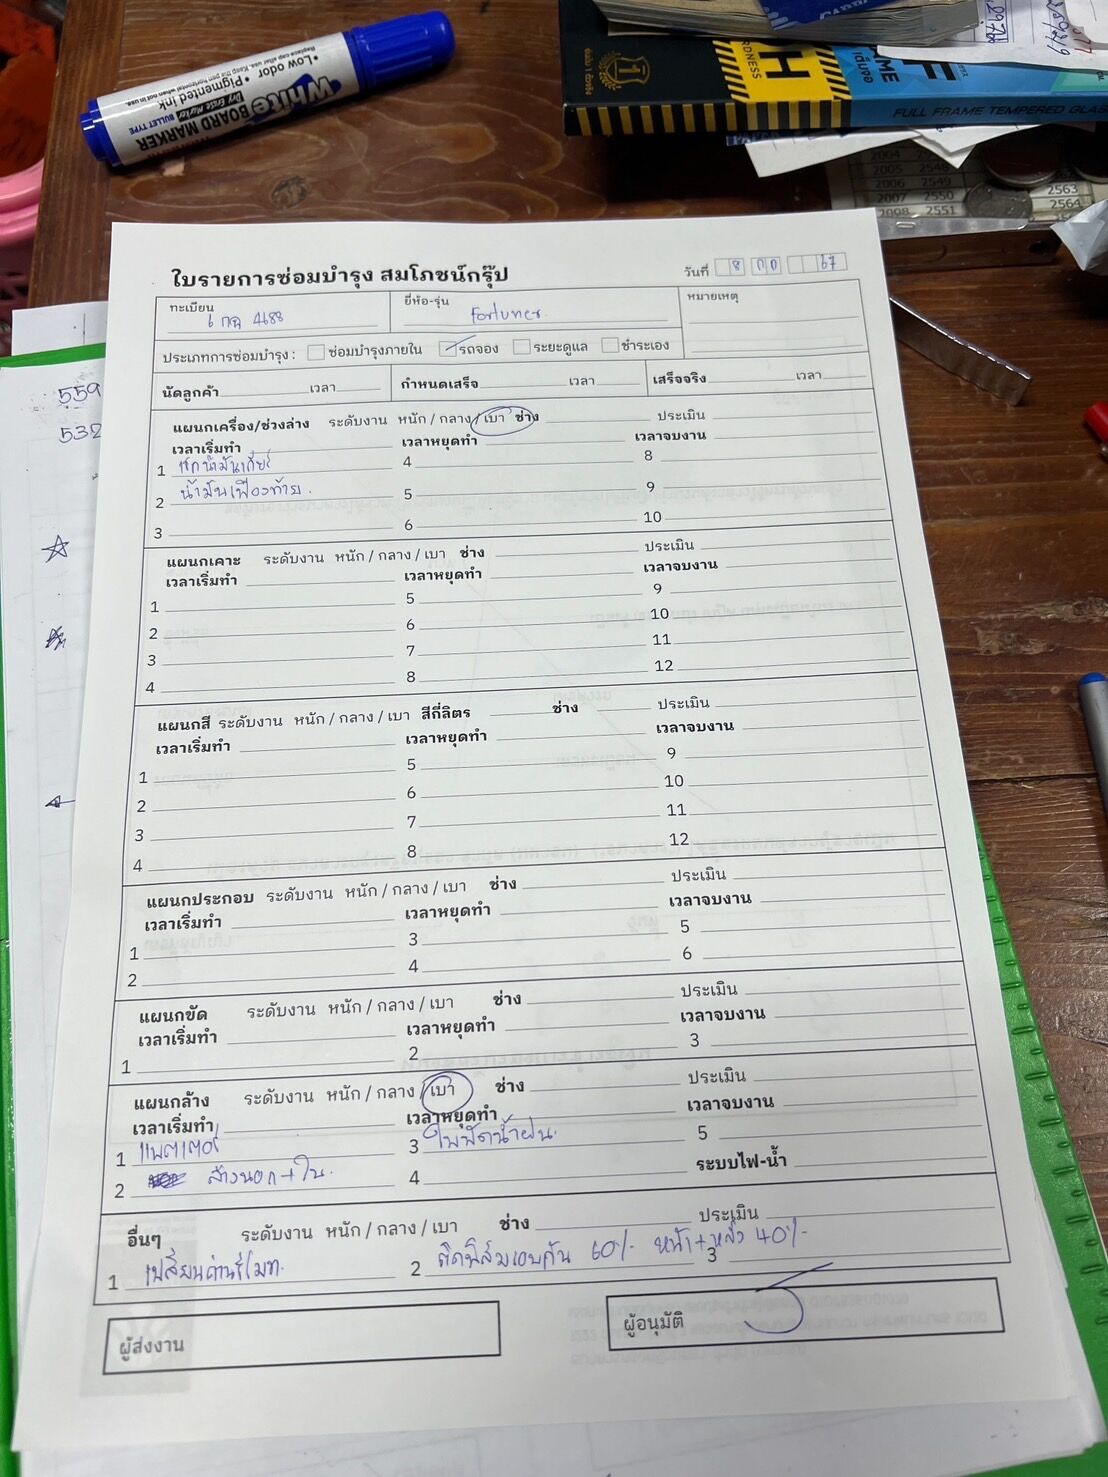 •Low odor •Pigmented ink
Replace cap after use. Keep this pen horizontal when not in use.
White
BOARD MARKER
Dry Erase Marker
BULLET TYPE
RDNESS
H
เต็มจอ
FULL FRAME TEMPERED GLASS
2004 2547
2005 2548
2006 2549
2007 2550
2008 2551
2563
2564
559
532
ใบรายการซ่อมบำรุง สมโภชน์กรุ๊ป
วันที่ 8 กค 67
ทะเบียน 6 กฉ 4688
ยี่ห้อ-รุ่น Fortuner
หมายเหตุ
ประเภทการซ่อมบำรุง : ซ่อมบำรุงภายใน รถจอง ระยะดูแล ชำระเอง
นัดลูกค้า เวลา กำหนดเสร็จ เวลา เสร็จจริง เวลา
แผนกเครื่อง/ช่วงล่าง ระดับงาน หนัก / กลาง / เบา ช่าง ประเมิน
เวลาเริ่มทำ เวลาหยุดทำ เวลาจบงาน
1 เช็คน้ำมันเกียร์ 4 8
2 น้ำมันเฟืองท้าย. 5 9
3 6 10
แผนกเคาะ ระดับงาน หนัก / กลาง / เบา ช่าง ประเมิน
เวลาเริ่มทำ เวลาหยุดทำ เวลาจบงาน
1 5 9
2 6 10
3 7 11
4 8 12
แผนกสี ระดับงาน หนัก / กลาง / เบา สีกี่ลิตร ช่าง ประเมิน
เวลาเริ่มทำ เวลาหยุดทำ เวลาจบงาน
1 5 9
2 6 10
3 7 11
4 8 12
แผนกประกอบ ระดับงาน หนัก / กลาง / เบา ช่าง ประเมิน
เวลาเริ่มทำ เวลาหยุดทำ เวลาจบงาน
1 3 5
2 4 6
แผนกขัด ระดับงาน หนัก / กลาง / เบา ช่าง ประเมิน
เวลาเริ่มทำ เวลาหยุดทำ เวลาจบงาน
1 2 3
แผนกล้าง ระดับงาน หนัก / กลาง / เบา ช่าง ประเมิน
เวลาเริ่มทำ เวลาหยุดทำ เวลาจบงาน
1 แบตเตอรี่ 3 ใบพัดน้ำฝน. 5
2 ล้างนอก + ใน. 4 ระบบไฟ-น้ำ
อื่นๆ ระดับงาน หนัก / กลาง / เบา ช่าง ประเมิน
1 เปลี่ยนถ่านรีโมท. 2 ติดฟิล์มรอบคัน 60% หน้า + หลัง 40% 3
ผู้ส่งงาน
ผู้อนุมัติ